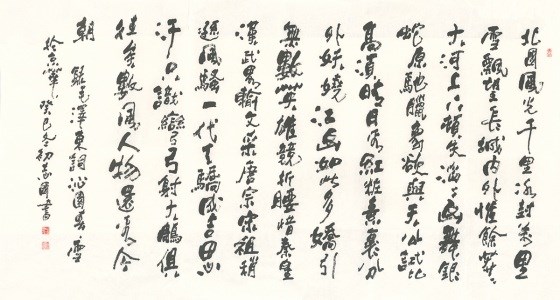 北國風光千里冰封萬里
雪飄望長城內外惟餘莽莽
大河上下頓失滔滔山舞銀
蛇原馳臘象欲與天公試比
高須晴日看紅粧素裹分
外妖嬈江山如此多嬌引
無數英雄競折腰惜秦皇
漢武畧輸文采唐宗宋祖稍
遜風騷一代天驕成吉思
汗只識彎弓射大鵰俱
往矣數風人物還看今
朝 錄毛澤東詞沁園春雪
於京華癸巳冬初書